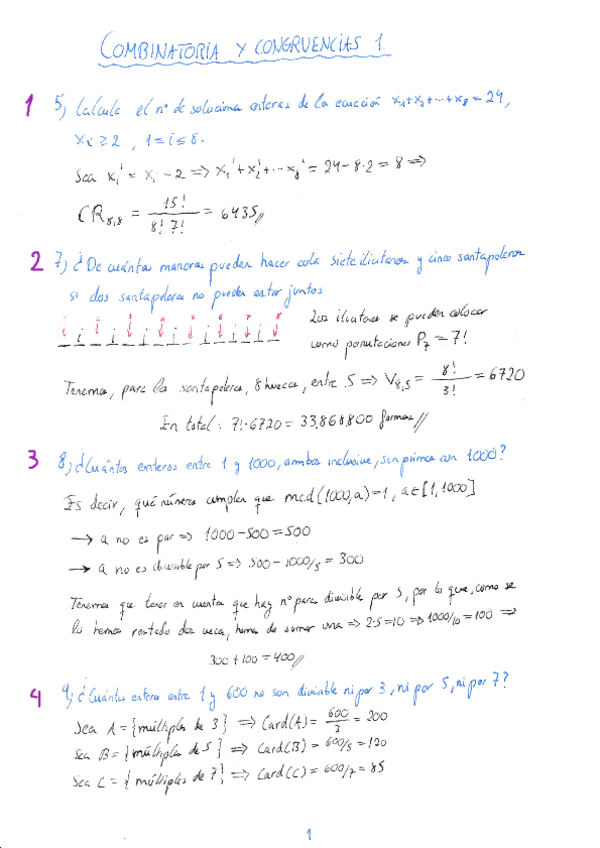 COMBINATORIA Y CONGRUENCIAS 1
1 5) Calcula el nº de soluciones enteras de la ecuación x₁+x₂+...+x₈ = 24,
xᵢ ≥ 2 , 1 ≤ i ≤ 8.
Sea xᵢ' = xᵢ - 2 => x₁'+x₂'+...x₈' = 24-8·2 = 8 =>
CR₈,₈ = 15! / 8! 7! = 6435//
2 7) ¿De cuántas maneras pueden hacer cola siete ilicitanos y cinco santapoleros
si dos santapoleros no pueden estar juntos
1 2 3 4 5 6 7 8
_ i _ i _ i _ i _ i _ i _ i _
Los ilicitanos se pueden colocar
como permutaciones P₇ = 7!
Tenemos, para los santapoleros, 8 huecos, entre 5 => V₈,₅ = 8! / 3! = 6720
En total: 7!·6720 = 33,868,800 formas//
3 8) ¿Cuántos enteros entre 1 y 1000, ambos inclusive, son primos con 1000?
Es decir, qué números cumplen que mcd(1000,a)=1, a∈[1,1000]
→ a no es par => 1000-500 = 500
→ a no es divisible por 5 => 500 - 1000/5 = 300
Tenemos que tener en cuenta que hay nº pares divisible por 5, por lo que, como se
los hemos restado dos veces, hemos de sumar una => 2·5=10 => 1000/10 = 100 =>
300+100 = 400//
4 9) ¿Cuántos enteros entre 1 y 600 no son divisible ni por 3, ni por 5, ni por 7?
Sea A = {múltiplos de 3} => Card(A) = 600/3 = 200
Sea B = {múltiplos de 5} => Card(B) = 600/5 = 120
Sea C = {múltiplos de 7} => Card(C) = 600/7 = 85
1